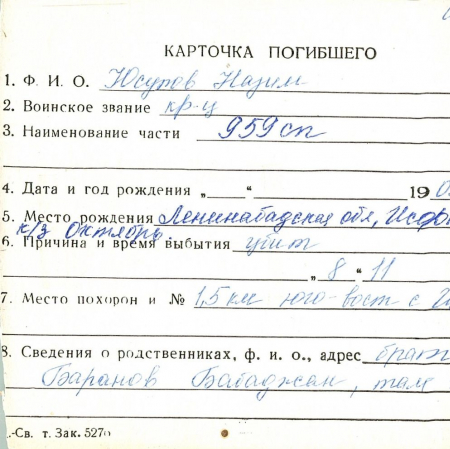 КАРТОЧКА ПОГИБШЕГО
1. Ф. И. О. Юсупов Назим
2. Воинское звание кр-ц
3. Наименование части 959 сп
4. Дата и год рождения „ “ 190
5. Место рождения Ленинабадская обл, Исф
к/з Октябрь.
6. Причина и время выбытия убит
„ 8 “ 11
7. Место похорон и № 1,5 км юго-вост с
8. Сведения о родственниках, ф. и. о., адрес брат
Баранов Бабаджан, там
.-Св. т. Зак. 527